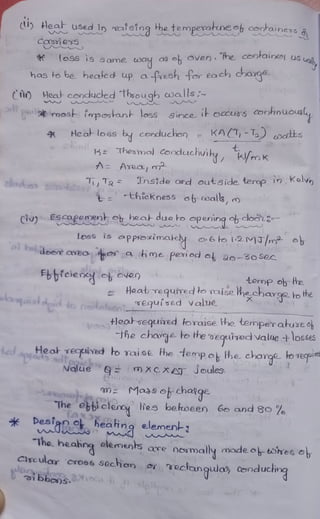 (ii) Heat used in raising the temperature of containers &
carriers
* loss is same way as of oven. The container usually
has to be heated up a fresh for each charge.
(iii) Heat conducted through walls:-
* most important loss since it occurs continuously
* Heat loss by conduction = KA(T1-T2)/t watts
K= Thermal conductivity, W/mK
A= Area, m²
T1, T2 = Inside and outside temp in Kelvn
t = -thickness of walls, m
(iv) Escapement of heat due to opening of door:-
loss is approximately 0.6 to 1.2 MJ/m² of
door area for a time period of 20-30 sec
Efficiency of oven
temp of the
= Heat required to raise the charge to the
required value
Heat required to raise the temperature of
the charge to the required value + losses
Heat required to raise the temp. of the charge to require
value Q = m×C×ΔJ Joules
m= Mass of charge
The efficiency lies between 60 and 80 %
* Design of heating element:
The heating elements are normally made of wires of
circular cross section or rectangular conducting
ribbons.